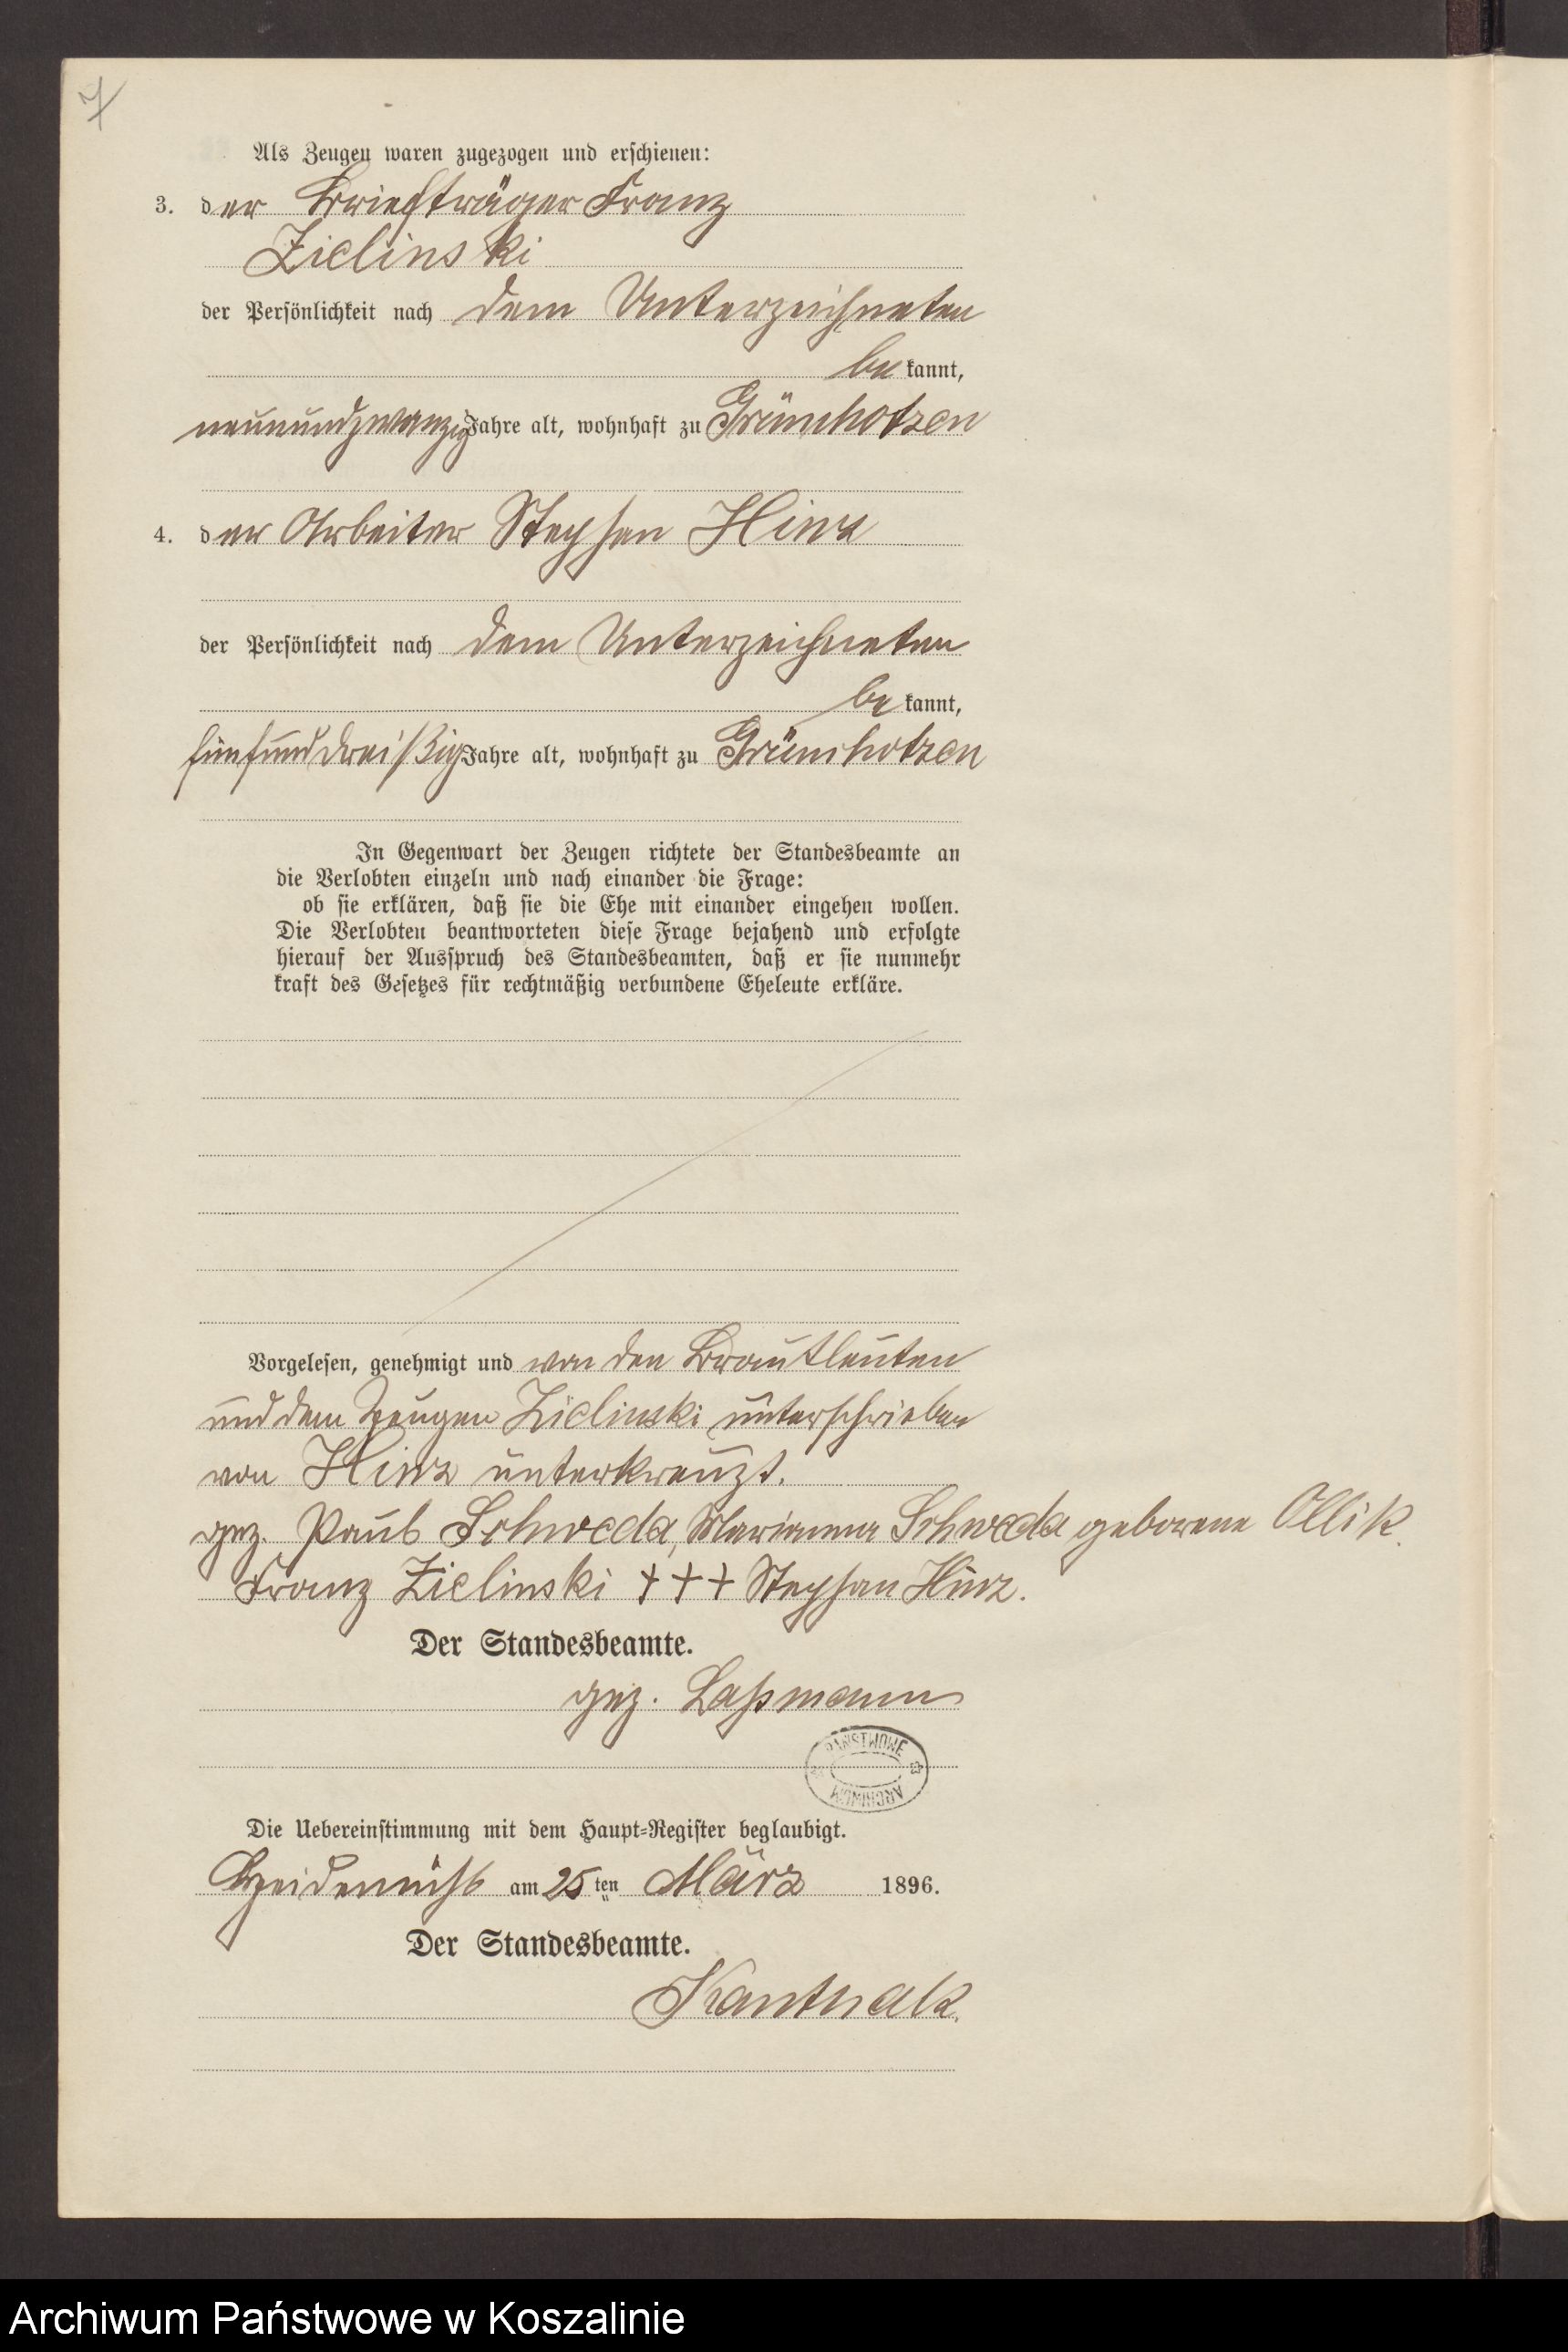 7
Als Zeugen waren zugezogen und erschienen:
3. der Briefträger Franz
Zielinski
der Persönlichkeit nach dem Unterzeichneten
bekannt,
neunundzwanzig Jahre alt, wohnhaft zu Grünchotzen
4. der Arbeiter Stephan Hinz
der Persönlichkeit nach dem Unterzeichneten
bekannt,
fünfunddreißig Jahre alt, wohnhaft zu Grünchotzen
In Gegenwart der Zeugen richtete der Standesbeamte an
die Verlobten einzeln und nach einander die Frage:
ob sie erklären, daß sie die Ehe mit einander eingehen wollen.
Die Verlobten beantworteten diese Frage bejahend und erfolgte
hierauf der Ausspruch des Standesbeamten, daß er sie nunmehr
kraft des Gesetzes für rechtmäßig verbundene Eheleute erkläre.
Vorgelesen, genehmigt und von den Brautleuten
und dem Zeugen Zielinski unterschrieben
von Hinz unterkreuzt.
gez. Paul Schweda, Marianna Schweda geborene Ollik.
Franz Zielinski +++ Stephan Hinz.
Der Standesbeamte.
gez. Laßmann
PAŃSTWOWE
ARCHIWUM
Die Uebereinstimmung mit dem Haupt-Register beglaubigt.
am 25ten März 1896.
Der Standesbeamte.
Kanthak.
Archiwum Państwowe w Koszalinie